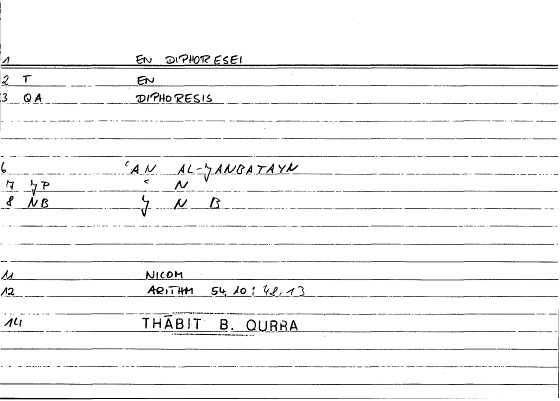 1 EN DIPHORESEI
2 T EN
3 QA DIPHORESIS
6 ʿAN AL-ǦANBATAYN
7 ǦP ʿ N
8 NB Ǧ N B
11 NICOM
12 ARITHM 54,10; 48,13
14 THĀBIT B. QURRA